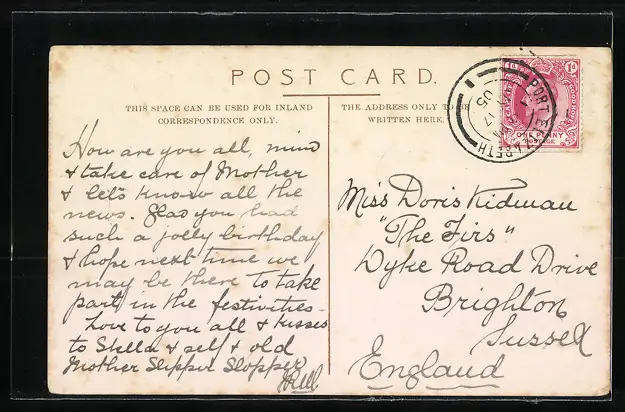 POST CARD.
THIS SPACE CAN BE USED FOR INLAND
CORRESPONDENCE ONLY.
THE ADDRESS ONLY TO BE
WRITTEN HERE.
How are you all, mind
& take care of Mother
& let's know all the
news. Glad you had
such a jolly birthday
& hope next time we
may be there to take
part in the festivities -
Love to you all & kisses
to Stella & self & old
Mother Slipper Slopper
Miss Doris Kidman
"The Firs"
Dyke Road Drive
Brighton
Sussex
England
PORT ELIZABETH
17
05
1d
1d
ONE PENNY
POSTAGE